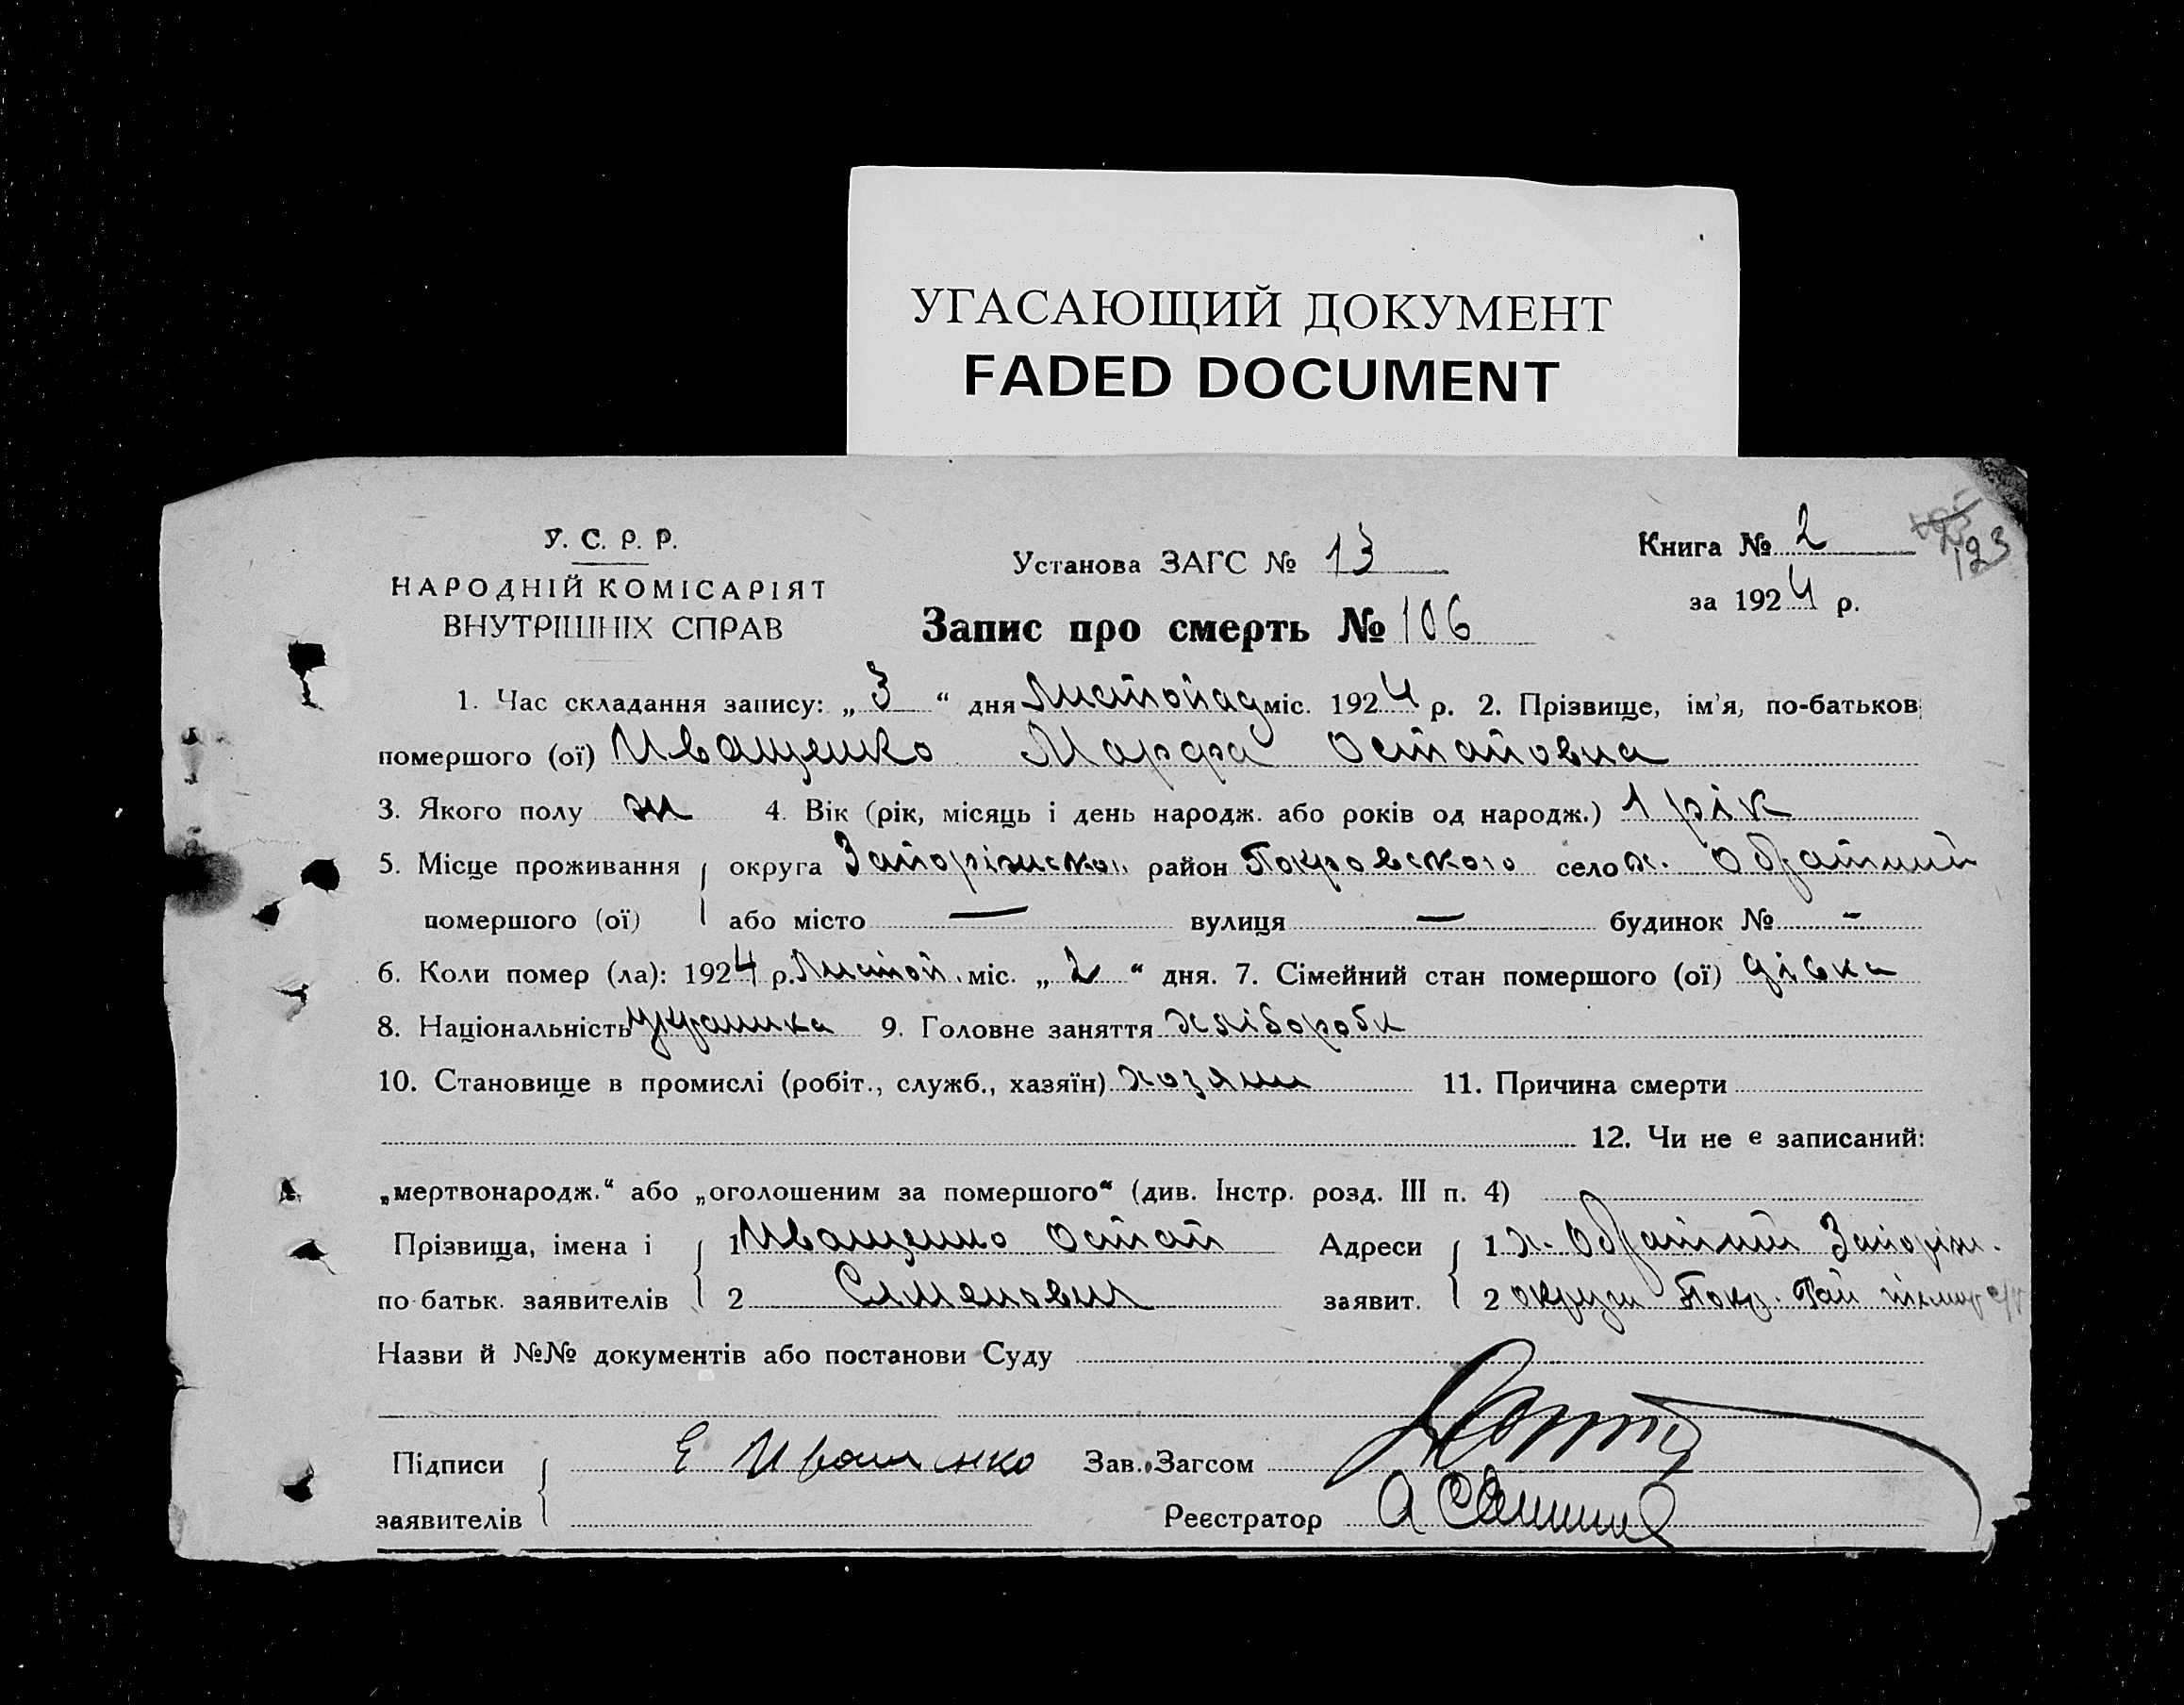 УГАСАЮЩИЙ ДОКУМЕНТ
FADED DOCUMENT
У. С. Р. Р.
НАРОДНІЙ КОМІСАРІЯТ
ВНУТРІШНІХ СПРАВ
Установа ЗАГС № 13
Запис про смерть № 106
Книга № 2
за 1924 р.
123
1. Час складання запису: „3“ дня Листопад міс. 1924 р. 2. Прізвище, ім'я, по-батьков
помершого (ої) Иващенко Марфа Остаповна
3. Якого полу ж 4. Вік (рік, місяць і день народж. або років од народж.) 1 рік
5. Місце проживання округа Запоріжської район Покровского село х. Обратний
помершого (ої) або місто — вулиця — будинок № -
6. Коли помер (ла): 1924 р. Листоп. міс. „2“ дня. 7. Сімейний стан помершого (ої) дівка
8. Національність украинка 9. Головне заняття хлібороби
10. Становище в промислі (робіт., служб., хазяїн) хозяин 11. Причина смерти
12. Чи не є записаний:
„мертвонародж.“ або „оголошеним за помершого“ (див. Інстр. розд. III п. 4)
Прізвища, імена і 1 Иващенко Остап Адреси 1 х. Обратний Запоріж.
по батьк. заявителів 2 Сименович заявит. 2 округи Покр. Рай
Назви й №№ документів або постанови Суду
Підписи Е Иващенко Зав. Загсом
заявителів Реєстратор